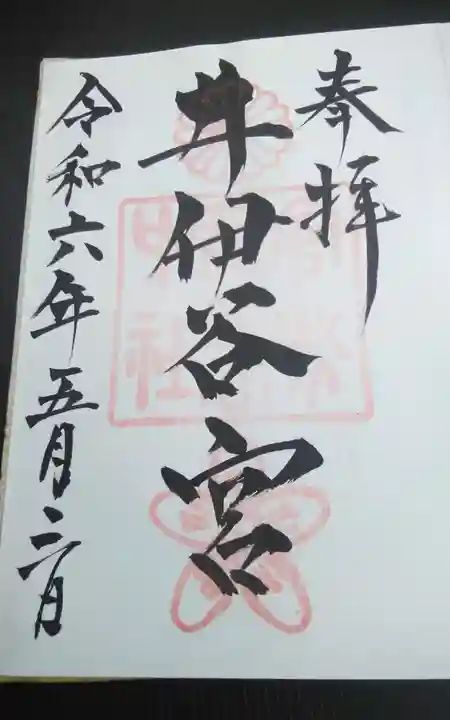 奉拝
井伊谷宮
令和六年五月二日
中社